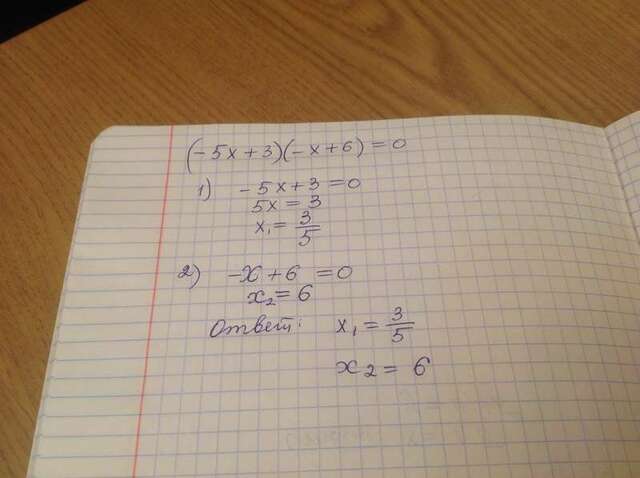 (-5x+3)(-x+6)=0
1) -5x+3=0
5x=3
x₁=3/5
2) -x+6=0
x₂=6
Ответ: x₁=3/5
x₂=6